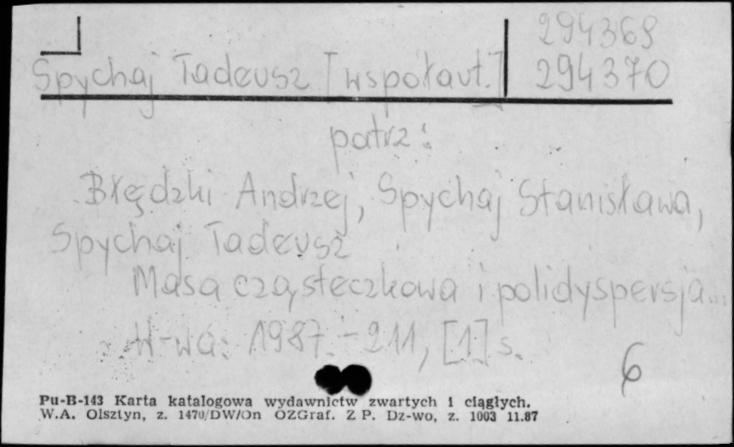 294369
Spychaj Tadeusz [współaut.] 294370
patrz:
Błędzki Andrzej, Spychaj Stanisława,
Spychaj Tadeusz
Masa cząsteczkowa i polidyspersja...
W-wa: 1987.- 211, [1] s.
6
Pu-B-143 Karta katalogowa wydawnictw zwartych i ciągłych.
W.A. Olsztyn, z. 1470/DW/On OZGraf. Z P. Dz-wo, z. 1003 11.87